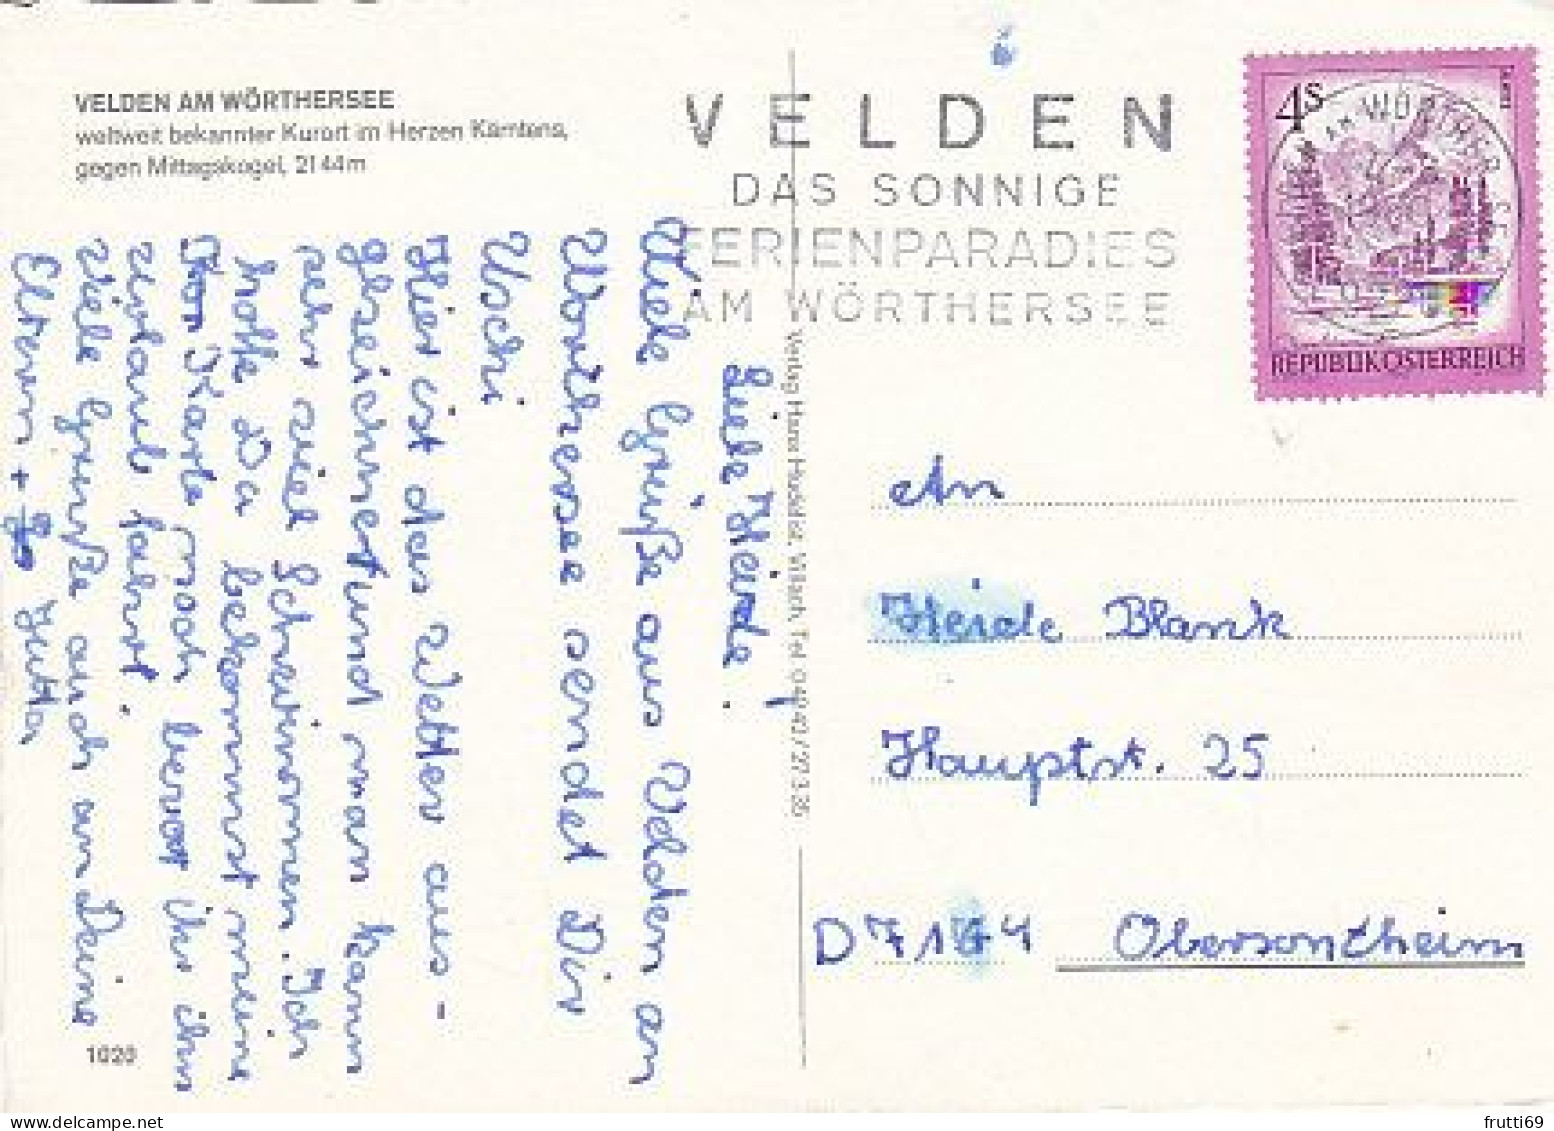 VELDEN AM WÖRTHERSEE
weltweit bekannter Kurort im Herzen Kärntens,
gegen Mittagskogel, 2144m
VELDEN
DAS SONNIGE
FERIENPARADIES
AM WÖRTHERSEE
4S
REPUBLIK ÖSTERREICH
Liebe Heide!
Viele Grüße aus Velden am
Wörthersee sendet Dir
Uschi
Hier ist das Wetter aus-
gezeichnet und man kann
sehr viel Schwimmen. Ich
hoffe Da bekommst meine
Karte noch bevor ihr in
urlaub fahrt.
Viele Grüße auch an Deine
Eltern + Jutta
An
Heide Blank
Hauptst. 25
D 7164 Obersontheim
1020
frutti69